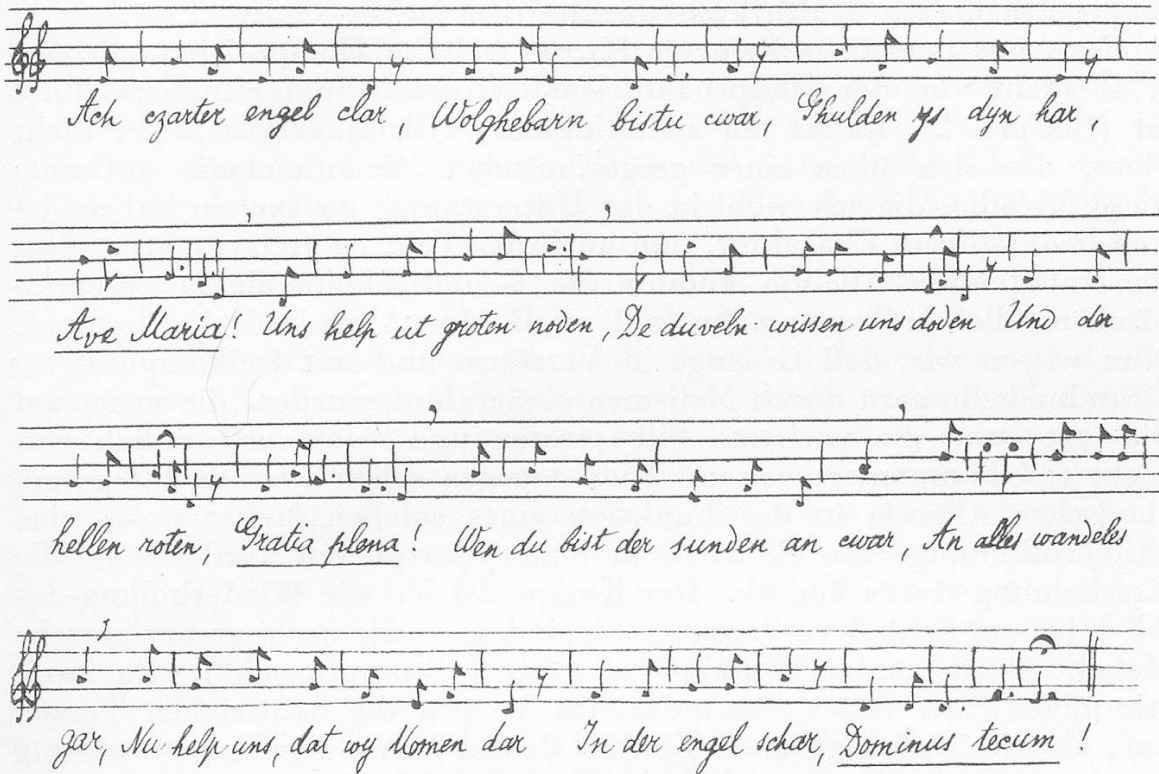 Ach czarter engel clar, Wolghebarn bistu cwar, Ghulden ys dyn har
Ave Maria! Uns help ut groten noden, De duveln wissen uns doden Und den
hellen roten, Gratia plena! Wen du bist der sunden an cwar, An alles wandeles
gar, Nu help uns, dat wy komen dar In der engel schar, Dominus tecum!